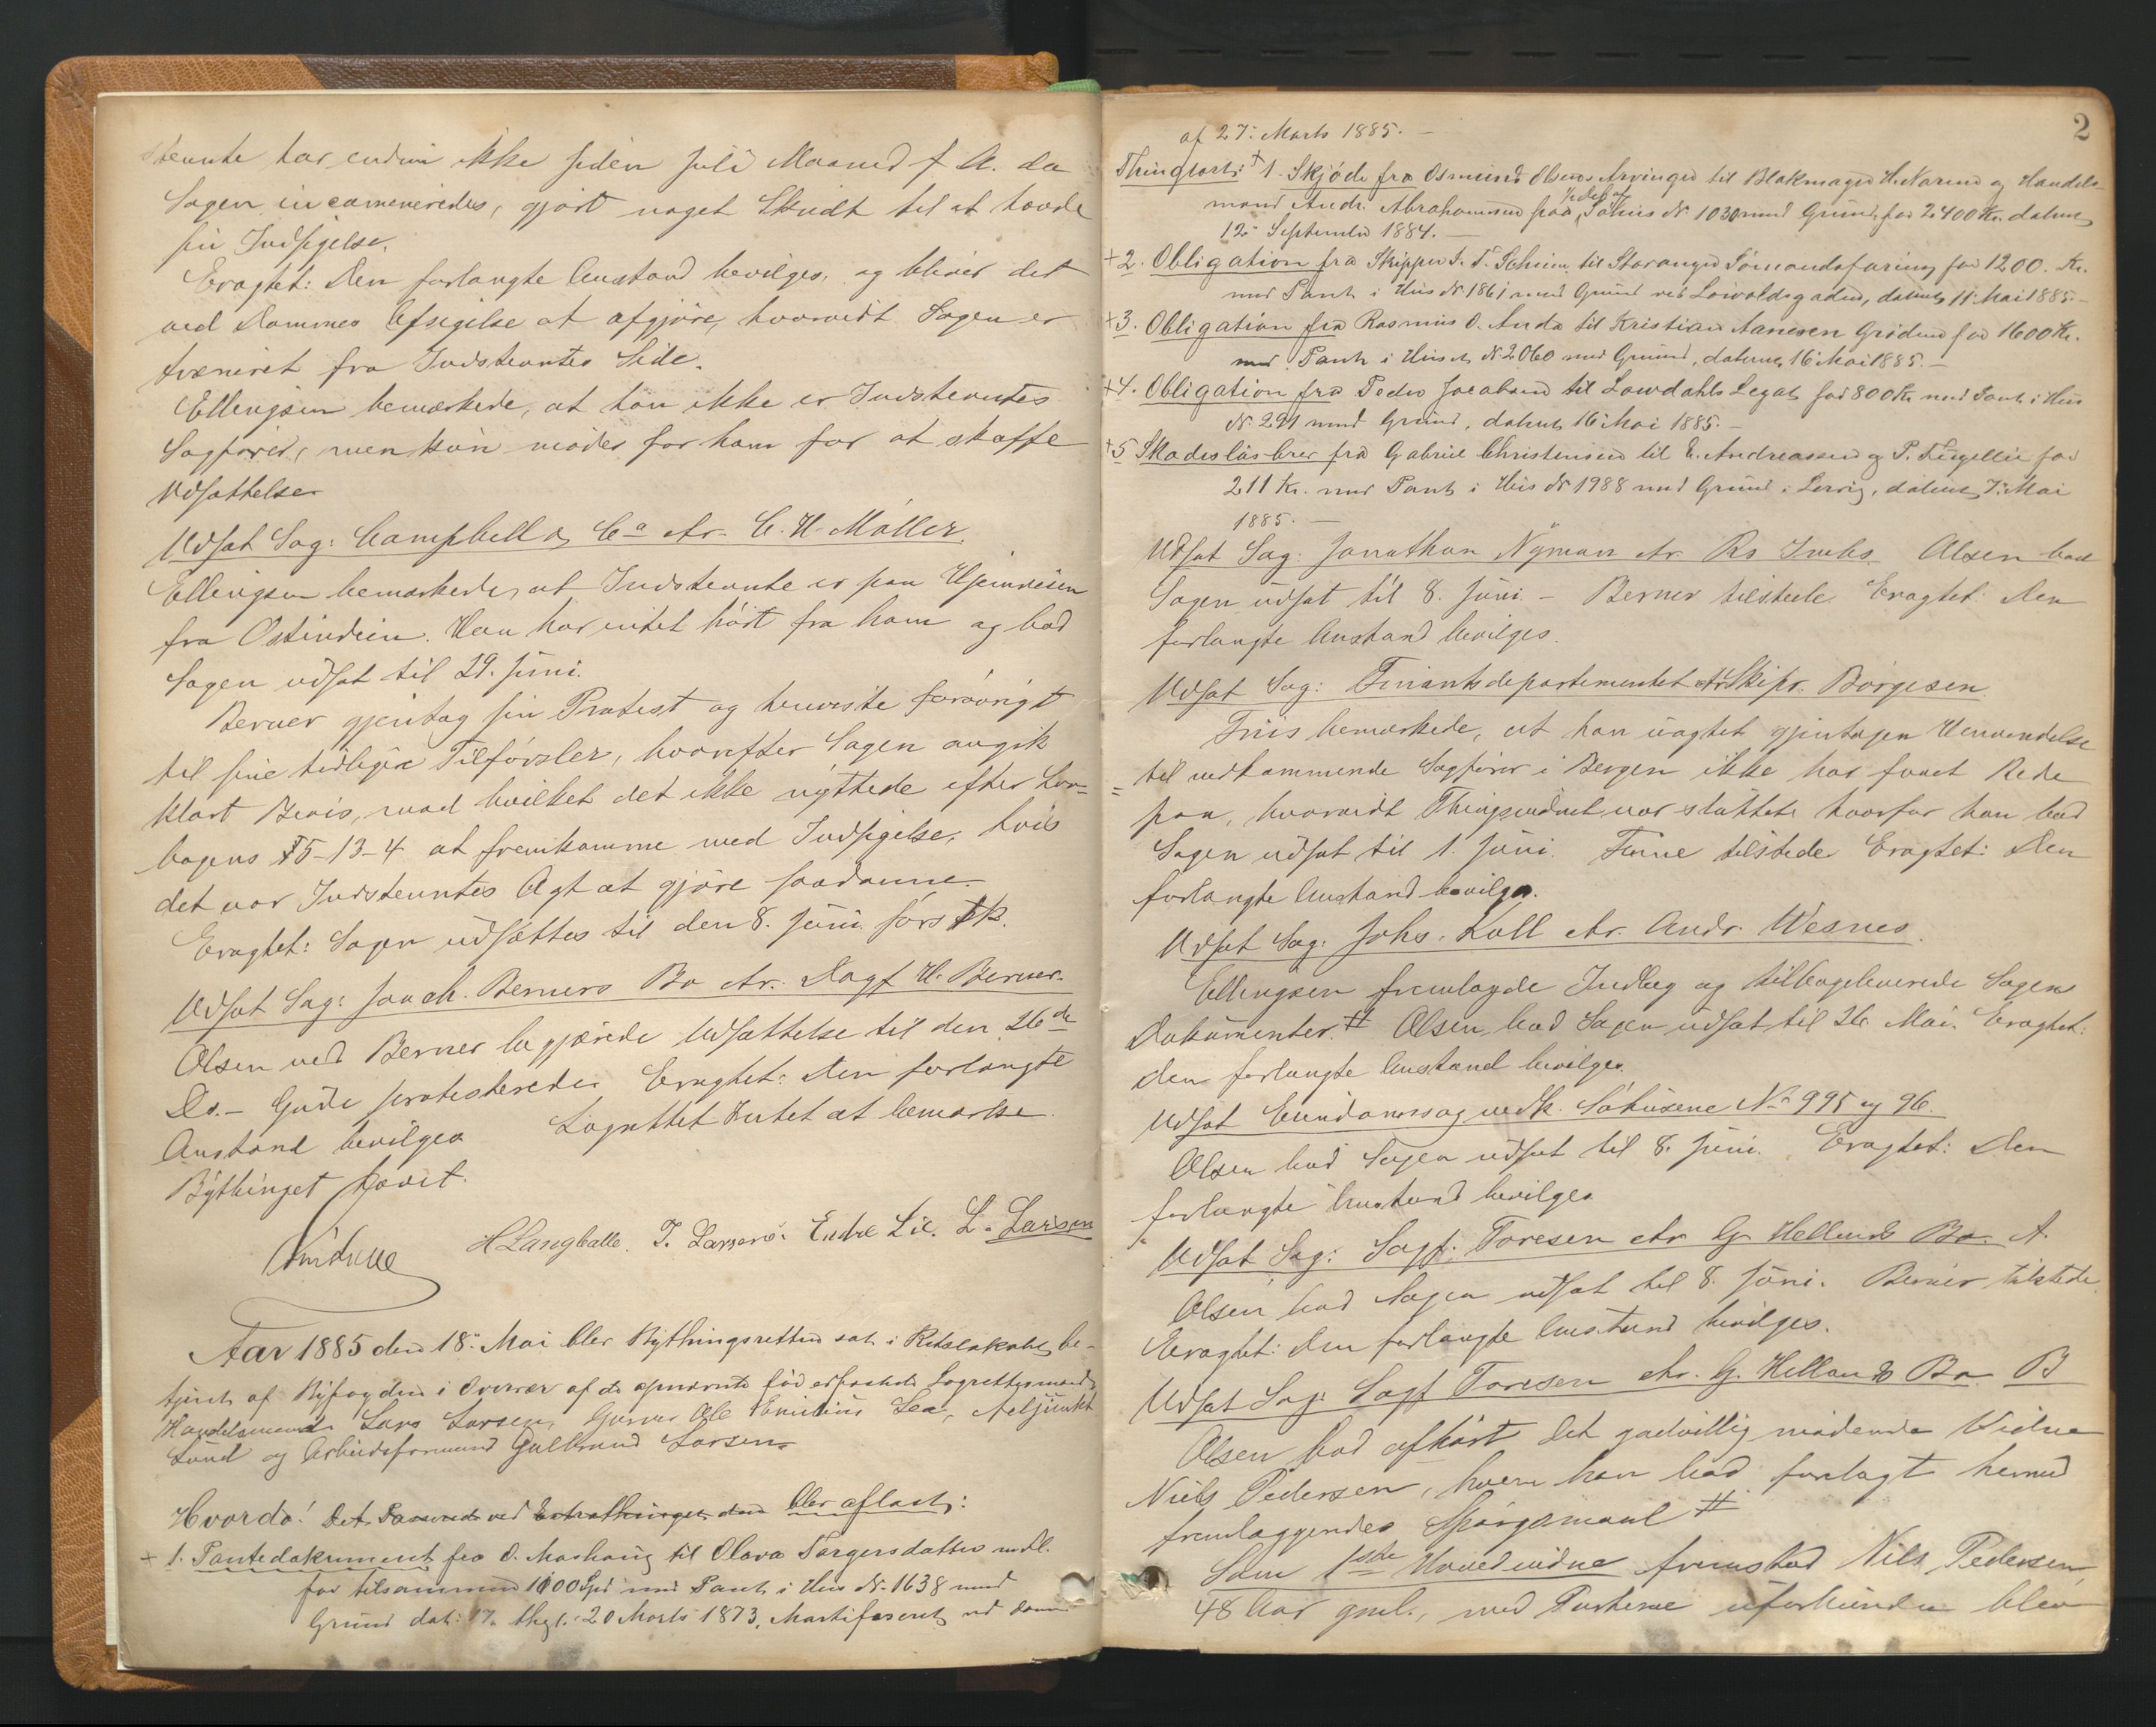 stevnte har endnu ikke siden Juli Maaned f. A. da
Sagen incamineredes, gjort noget Skridt til at hævde
sin Indsigelse.
Eragtet: Den forlangte Anstand bevilges, og bliver det
ved Dommes Afsigelse at afgjøre, hvorvidt Sagen er
træneret fra Indstevntes Side.
Ellingsen bemærkede, at han ikke er Indstevntes
Sagfører, men kun møder for ham for at skaffe
Udsættelse
Udsat Sag: Campbell & Co ctr. C. H. Møller.
Ellingsen bemærkede, at Indstevnte er paa Hjemreisen
fra Ostindien. Han har intet hørt fra ham og bad
Sagen udsat til 29. Juni.
Berner gjentog sin Protest og henviste forøvrigt
til sine tidligere Tilførsler, hvorefter Sagen angik
klart Bevis, mod hvilket det ikke nyttede efter Lov-
bogens 5-13-4 at fremkomme med Indsigelse, hvis
det var Indstevntes Agt at gjøre saadanne.
Eragtet: Sagen udsættes til den 8. Juni førstk.
Udsat Sag: Joach. Berners Bo ctr. Sagf H. Berner.
Olsen ved Berner begjærede Udsættelse til den 26de
Ds. - Gude protesterede. Eragtet: Den forlangte
Anstand bevilges Lagrettet Intet at bemærke.
Bythinget hævet.
H Langballe. T. Larsen. Endre Lie. L. Larsen
Aar 1885 den 18. Mai blev Bythingsretten sat i Retslokalet, be-
tjent af Byfogden i Overvær af de opnævnte Lagrettesmænd
Handelsmand Lars Larsen, Ole Lea, Adjunkt
Lund og Arbeidsformand Gulbrand Larsen
Hvorda! Det Passerede ved Extrathinget den blev aflæst:
+ 1. Pantedokument fra O. Moshaug til Olava Torgersdatter mdl.
for tilsammen 1100 Spd med Pant i Hus No. 1638 med
Grund dat: 17. thgl. 20 Marts 1873, Mortificeret ved Dom
2
af 27. Marts 1885. -
Thinglæst: + 1. Skjøde fra Osmund Olsens Arvinger til Blokmager H. Narum og Handels-
mand Andr. Abrahamsen paa ½ Del af Søhus No 1030 med Grund for 2400 Kr. dateret
12. September 1884. -
+ 2. Obligation fra Skipper T. T. til Stavanger Sømandsforening for 1200. Kr.
med Pant i Hus No 1861 med Grund ved Løvoldsgaden, dateret 11. Mai 1885. -
+ 3. Obligation fra Rasmus O. Anda til Kristian Aanesen Grødem for 1600 Kr.
med Pant i Huset No 2060 med Grund, dateret 16. Mai 1885. -
+ 4. Obligation fra Peder Jacobsen til Lowdahls Legat for 800 Kr. med Pant i Hus
No 291 med Grund, dateret 16. Mai 1885. -
+ 5 Skadesløsbrev fra Gabriel Christensen til E. Andreassen og P. Tengella for
211 Kr. med Pant i Hus No 1988 med Grund i Lervig, dateret 7. Mai
1885. -
Udsat Sag: Jonathan Nyman ctr. Olsen bad
Sagen udsat til 8. Juni - Berner tilstede Eragtet: Den
forlangte Anstand bevilges.
Udsat Sag: Finantsdepartementet ctr Skipr. Børgesen.
Friis bemærkede, at han uagtet gjentagen Henvendelse
til vedkommende Sagfører i Bergen ikke har faaet Rede
paa, hvorvidt Thingsvidnet var sluttet hvorfor han bad
Sagen udsat til 1. Juni. Finne tilstede. Eragtet: Den
forlangte Anstand bevilges.
Udsat Sag: Johs. Koll ctr. Andr. Wesnes.
Ellingsen fremlagde Indlæg og tilbageleverede Sagens
Dokumenter. # Olsen bad Sagen udsat til 26. Mai. Eragtet:
Den forlangte Anstand bevilges.
Udsat vedk. Søhusene No 995 og 96.
Olsen bad Sagen udsat til 8. Juni. Eragtet: Den
forlangte Anstand bevilges
Udsat Sag: Sagf. Toresen ctr G. Hellands Bo. A.
Olsen bad Sagen udsat til 8. Juni. Berner tilstede.
Eragtet: Den forlangte Anstand bevilges.
Udsat Sag: Sagf Toresen ctr. G. Hellands Bo B
Olsen bad afhørt det godvillig mødende Vidne
Niels Pedersen, hvem han bad forelagt herved
fremlæggendes Spørgsmaal #
Som 1ste Hovedvidne fremstod Nils Pedersen,
48 Aar gml., med Parterne uforbunden blev